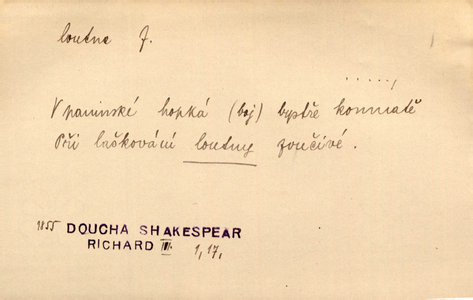 loutna f.
. . . . . ,
V paninské hopká (boj) bystře komnatě
Při laškování loutny zvučivé.
1855 DOUCHA SHAKESPEAR
RICHARD III. 1, 17,